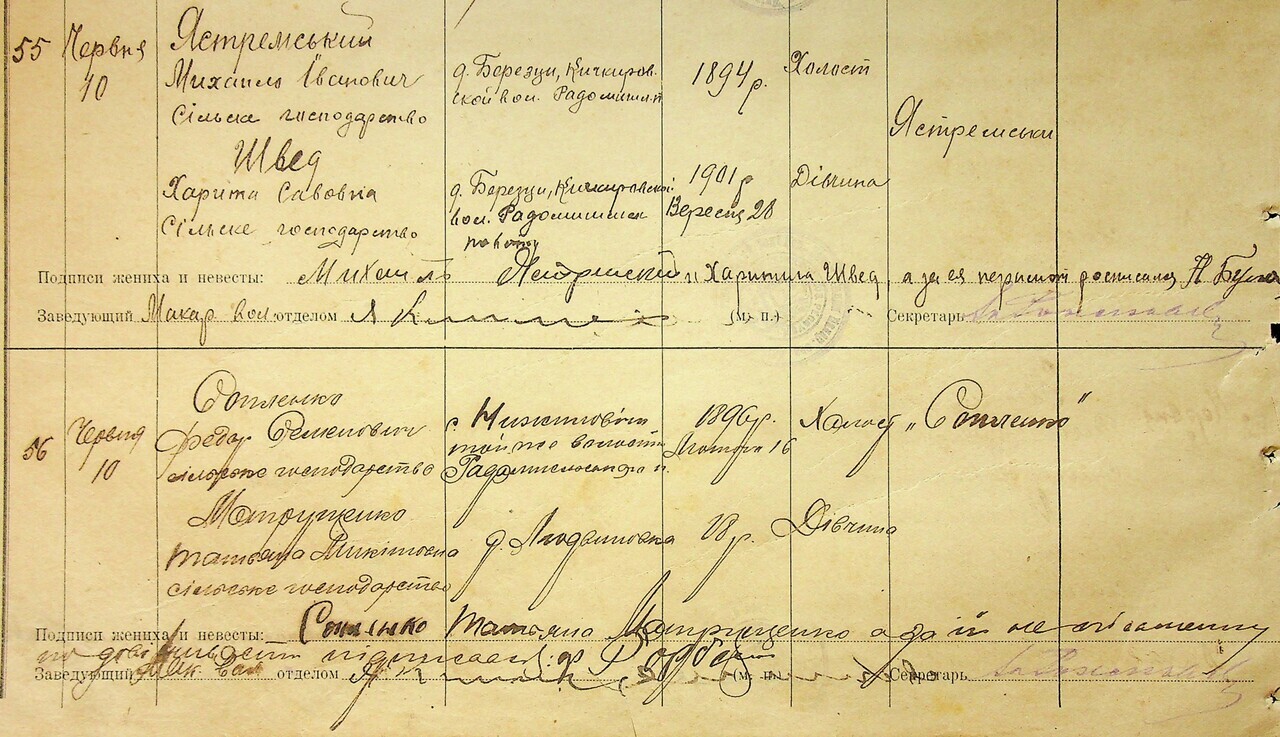 55 Червня 10
Ястремський
Михаило Іванович
сільске господарство
д. Березци, Кичкиров
ской вол. Радомишл. п
1894 р.
Холост
Ястремськи
Швед
Харита Савовна
Сільске господарство
д. Березци, Кичкировской
вол. Радомишльск
повіту
1901 р
Вересня 28
Дівчина
Подписи жениха и невесты: Михаилъ Ястремский и Харитина Швед, а за ея неграмот росписался
Заведующий Макар вол. отделом (м. п.) Секретарь
56 Червня 10
Сопленко
Федор Семенович
сільске господарство
с.
той же волости
Радомисльского п.
1896 р.
Лютого 16
Холост
„Сопленко"
Матрущенко
Татьяна Микитовна
сільске господарство
д. Людвиновка
18 р.
Дівчина
Подписи жениха и невесты: Сопленко Татьяна Матрущенко а за її неписьменну
по підписався
Заведующий Мак. Вол отделом (м. п.) Секретарь